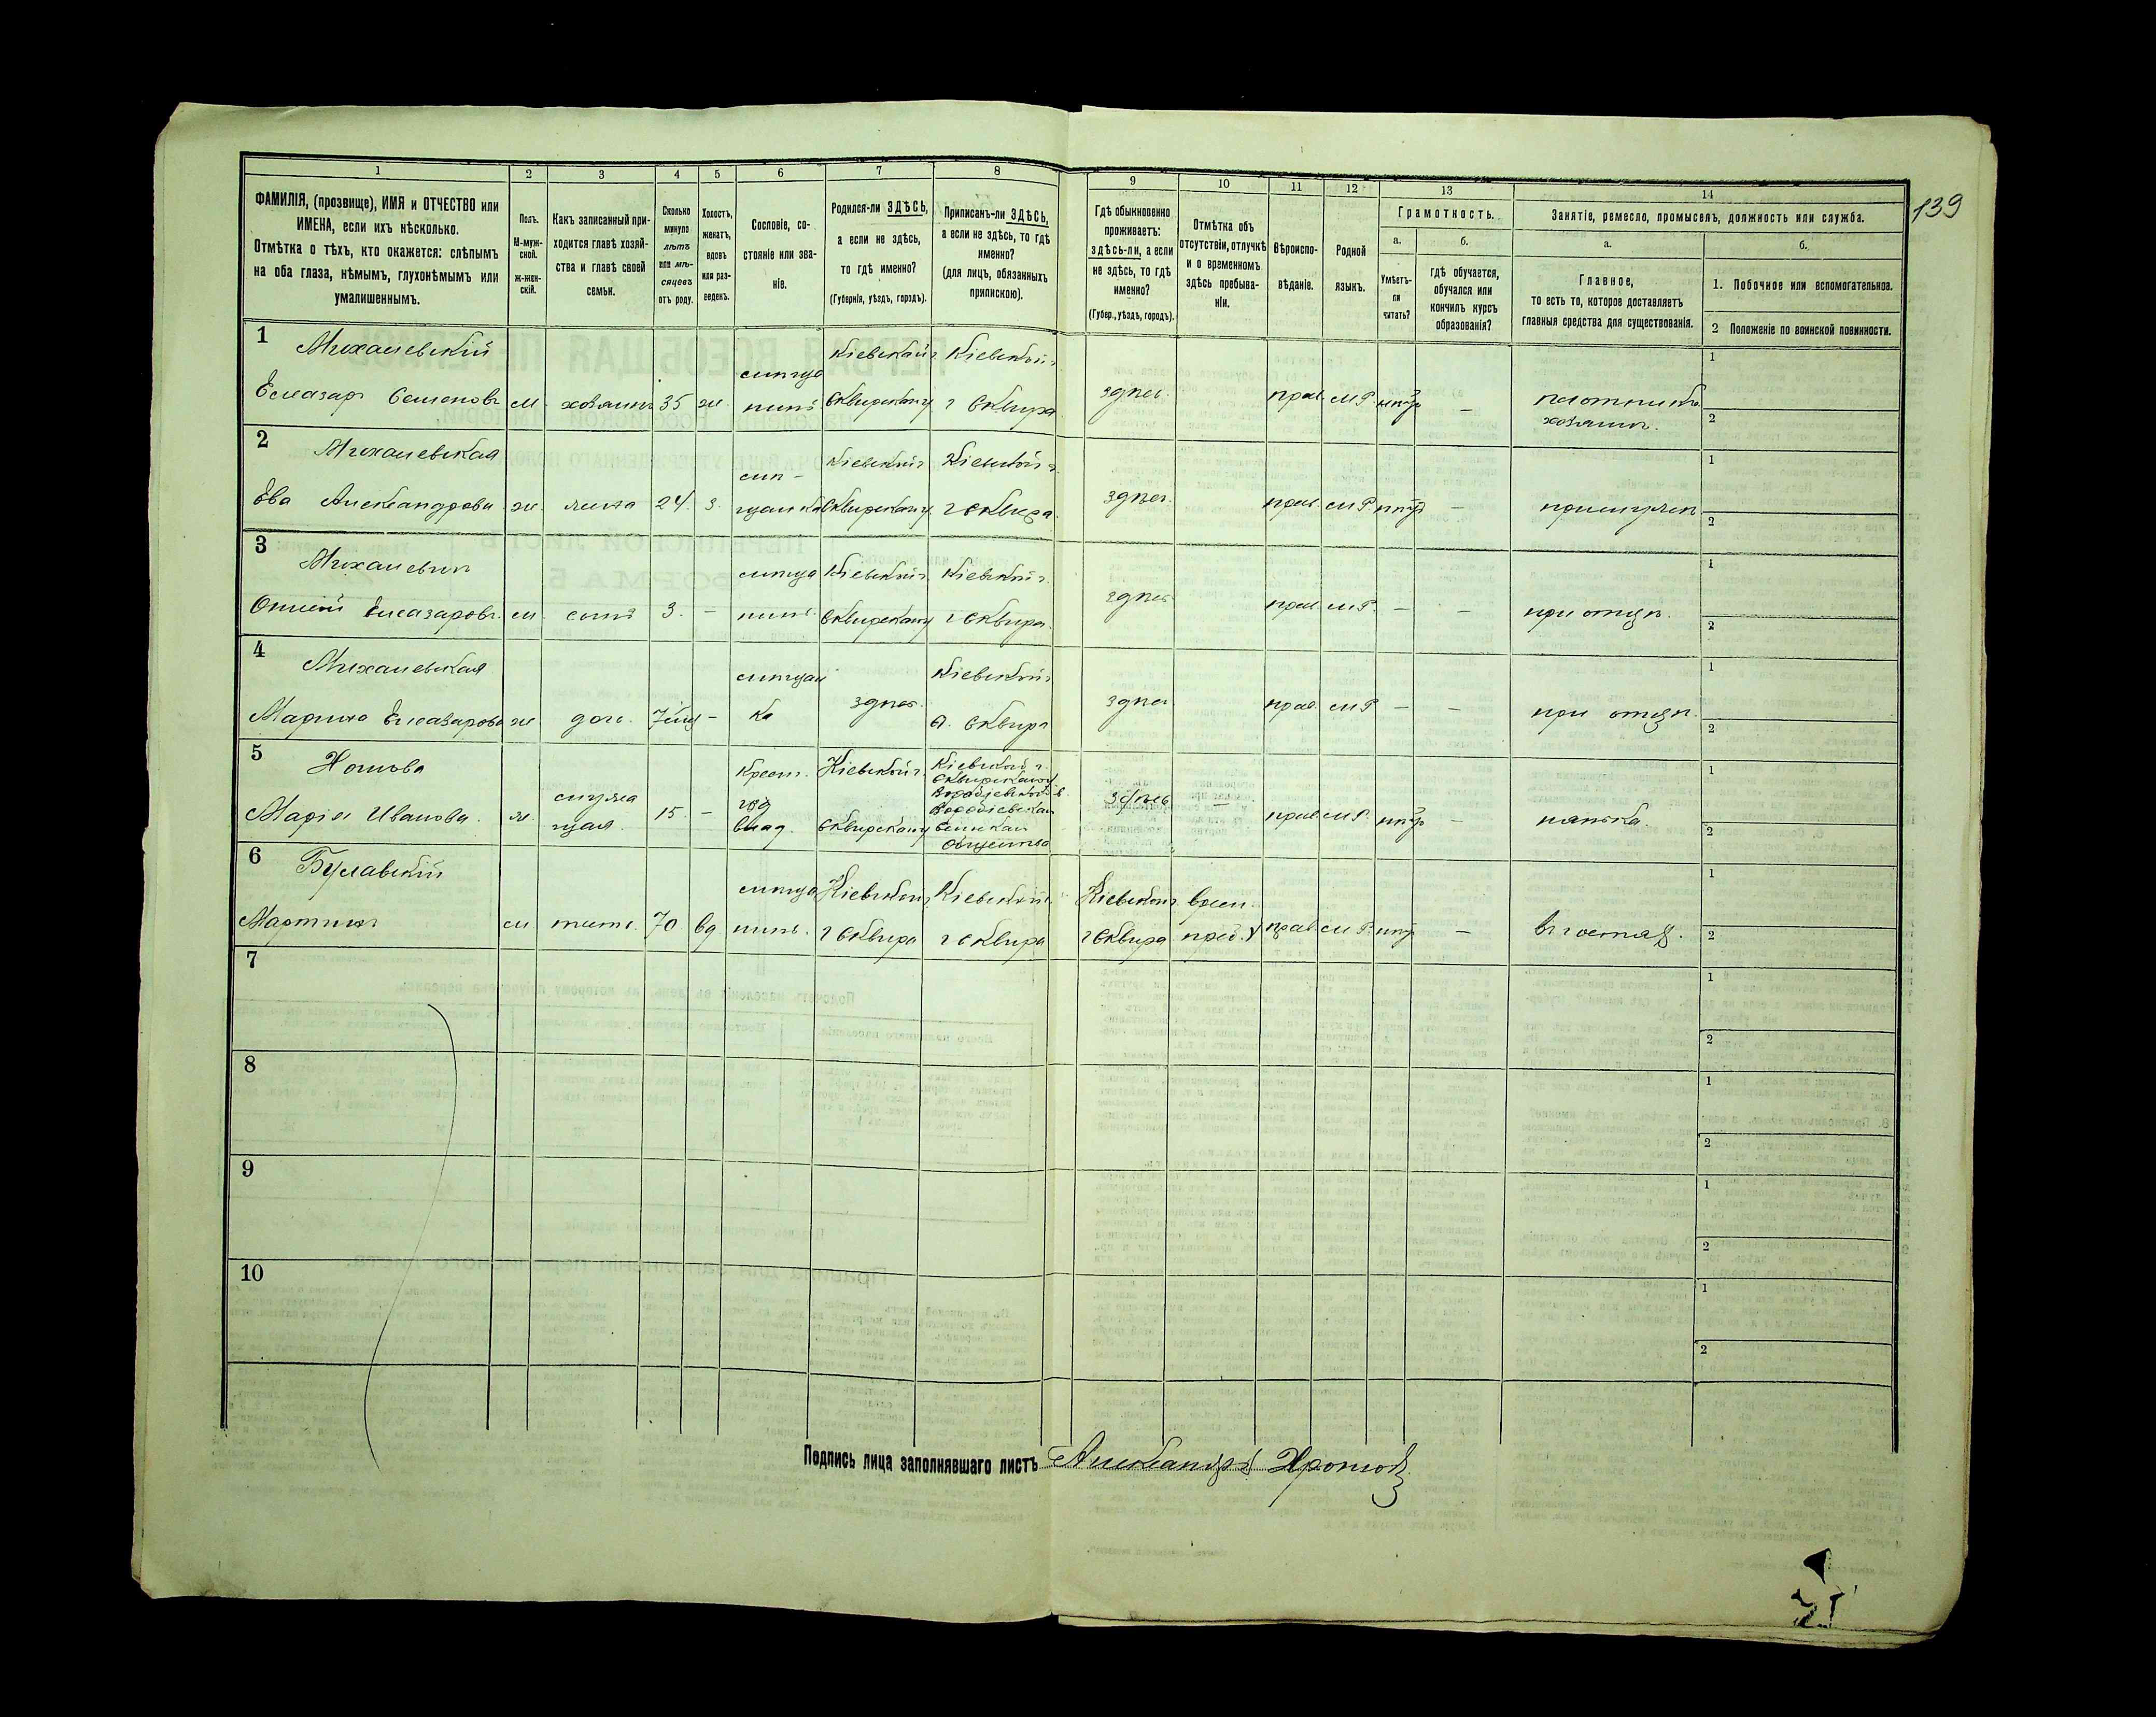 139
1 2 3 4 5 6 7 8 9 10 11 12 13 14
ФАМИЛІЯ, (прозвище), ИМЯ и ОТЧЕСТВО или ИМЕНА, если ихъ нѣсколько.
Отмѣтка о тѣхъ, кто окажется: слѣпымъ на оба глаза, нѣмымъ, глухонѣмымъ или умалишеннымъ.
Полъ.
М-муж-
ской.
ж-жен-
скій.
Какъ записанный при-
ходится главѣ хозяй-
ства и главѣ своей
семьи.
Сколько
минуло
лѣтъ
или мѣ-
сяцевъ
отъ роду.
Холостъ,
женатъ,
вдовъ
или раз-
веденъ.
Сословіе, со-
стояніе или зва-
ніе.
Родился-ли ЗДѢСЬ,
а если не здѣсь,
то гдѣ именно?
(Губернія, уѣздъ, городъ).
Приписанъ-ли ЗДѢСЬ,
а если не здѣсь, то гдѣ
именно?
(для лицъ, обязанныхъ
припискою).
Гдѣ обыкновенно
проживаетъ:
здѣсь-ли, а если
не здѣсь, то гдѣ
именно?
(Губер., уѣздъ, городъ).
Отмѣтка объ
отсутствіи, отлучкѣ
и о временномъ
здѣсь пребыва-
ніи.
Вѣроиспо-
вѣданіе.
Родной
языкъ.
Грамотность.
а.
Умѣетъ-
ли
читать?
б.
гдѣ обучается,
обучался или
кончилъ курсъ
образованія?
Занятіе, ремесло, промыселъ, должность или служба.
а.
Главное,
то есть то, которое доставляетъ
главныя средства для существованія.
б.
1. Побочное или вспомогательное.
2 Положеніе по воинской повинности.
1 Михалевскій Кіевской г. Кіевской г. 1
Елеазар Семенов м. хозяинъ 35 ж. Сквирскаго у г Сквира здѣсь прав. м.р. — плотникъ 2
хозяинъ.
2 Михалевская Кіевской г. Кіевской г. 1
Ева Александрова ж. жена 24. з. Сквирскаго у. г Сквира. здѣсь. прав. м.р. — при мужѣ 2
3 Кіевской г. Кіевской г. 1
Елеазаровъ. м. сынъ 3. — Сквирскаго у г Сквира. здѣсь прав. м.р. — — при отцѣ. 2
4 Михалевская Кіевской г. 1
Марина Елеазарова ж дочь. — здѣсь. г. Сквира здѣсь прав. м.р. — — при отцѣ. 2
5 Крест. Кіевской г. Кіевской г. 1
Сквирскаго у
Марія Иванова. ж. служа
щая. 15. — Сквирскаго у здѣсь — прав. м.р. — нянька. 2
общества
6 Булавскій Кіевской г. Кіевской г. Кіевской г. врем. 1
Мартинъ м тесть. 70 вд г Сквира г Сквира г Сквира преб. прав. м.р. — въ гостях. 2
7 1
2
8 1
2
9 1
2
10 1
2
Подпись лица заполнявшаго листъ Александръ